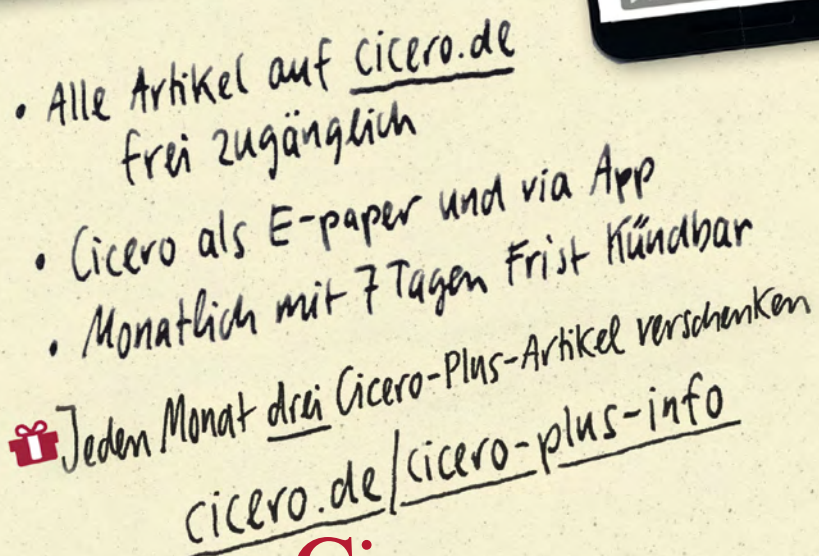 • Alle Artikel auf cicero.de
frei zugänglich
• Cicero als E-paper und via App
• Monatlich mit 7 Tagen Frist Kündbar
Jeden Monat drei Cicero-Plus-Artikel verschenken
cicero.de/cicero-plus-info
Ci